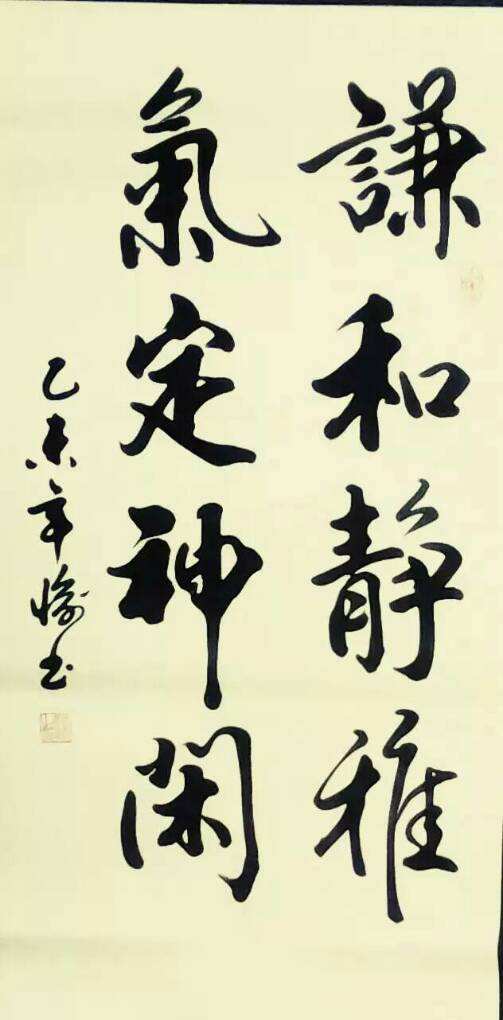 謙和静雅
氣定神閑
乙未年 書